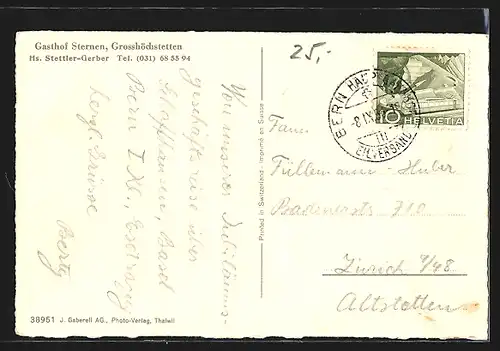 Gasthof Sternen, Grosshöchstetten
Hs. Stettler-Gerber Tel. (031) 68 55 94
25,-
Von unserer Jubiläums-
geschäftsreise über
Basel
Bern
herzl. Grüsse
Berty
38951 J. Gaberell AG., Photo-Verlag, Thalwil
Printed in Switzerland - Imprimé en Suisse
BERN
EILVERSAND
10 HELVETIA
Füllemann-Huber
Badenerstr. 710
Zürich 9/48
Altstetten